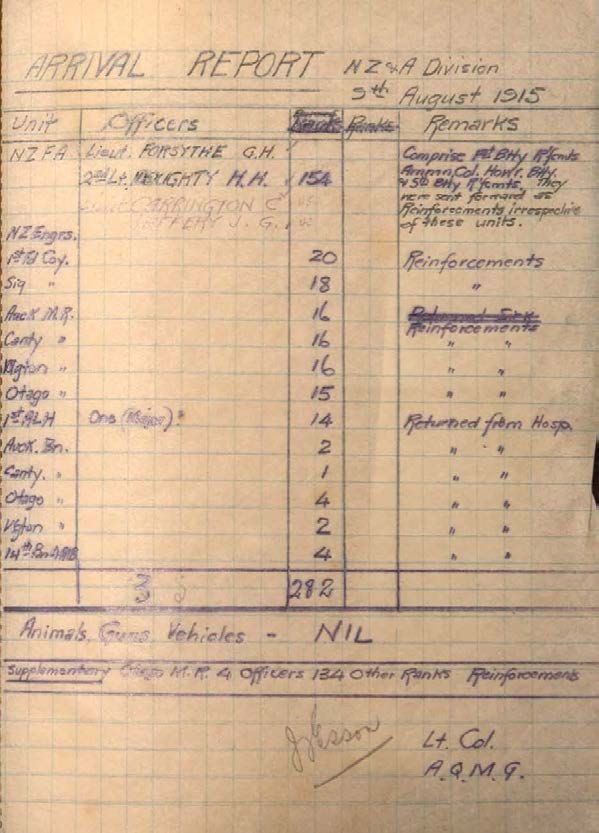 ARRIVAL REPORT NZ & A Division
9th August 1915
Unit Officers Ranks Remarks
NZFA Lieut. FORSYTHE G.H. " Comprise 1st Bty R'fcmts
2nd Lt. DOUGHTY H.H. " 154 Ammn. Col. How'r. Bty.
& 5th Bty R'fcmts. They
CARRINGTON C were sent forward as
JEFFERY J. G. Reinforcements irrespective
of these units.
NZ Engrs.
1st Fd Coy. 20 Reinforcements
Sig " 18 "
Auck M.R. 16 Returned Sick
Reinforcements
Canty " 16 " "
Wgton " 16 " "
Otago " 15 " "
1st ALH One (Major) " 14 Returned from Hosp.
Auck. Bn. 2 " "
Canty. " 1 " "
Otago " 4 " "
Wgton " 2 " "
14th Bn 4 " "
3 282
Animals, Guns, Vehicles - NIL
Supplementary Otago M.R. 4 Officers 134 Other Ranks Reinforcements
Lt. Col.
A.Q.M.G.